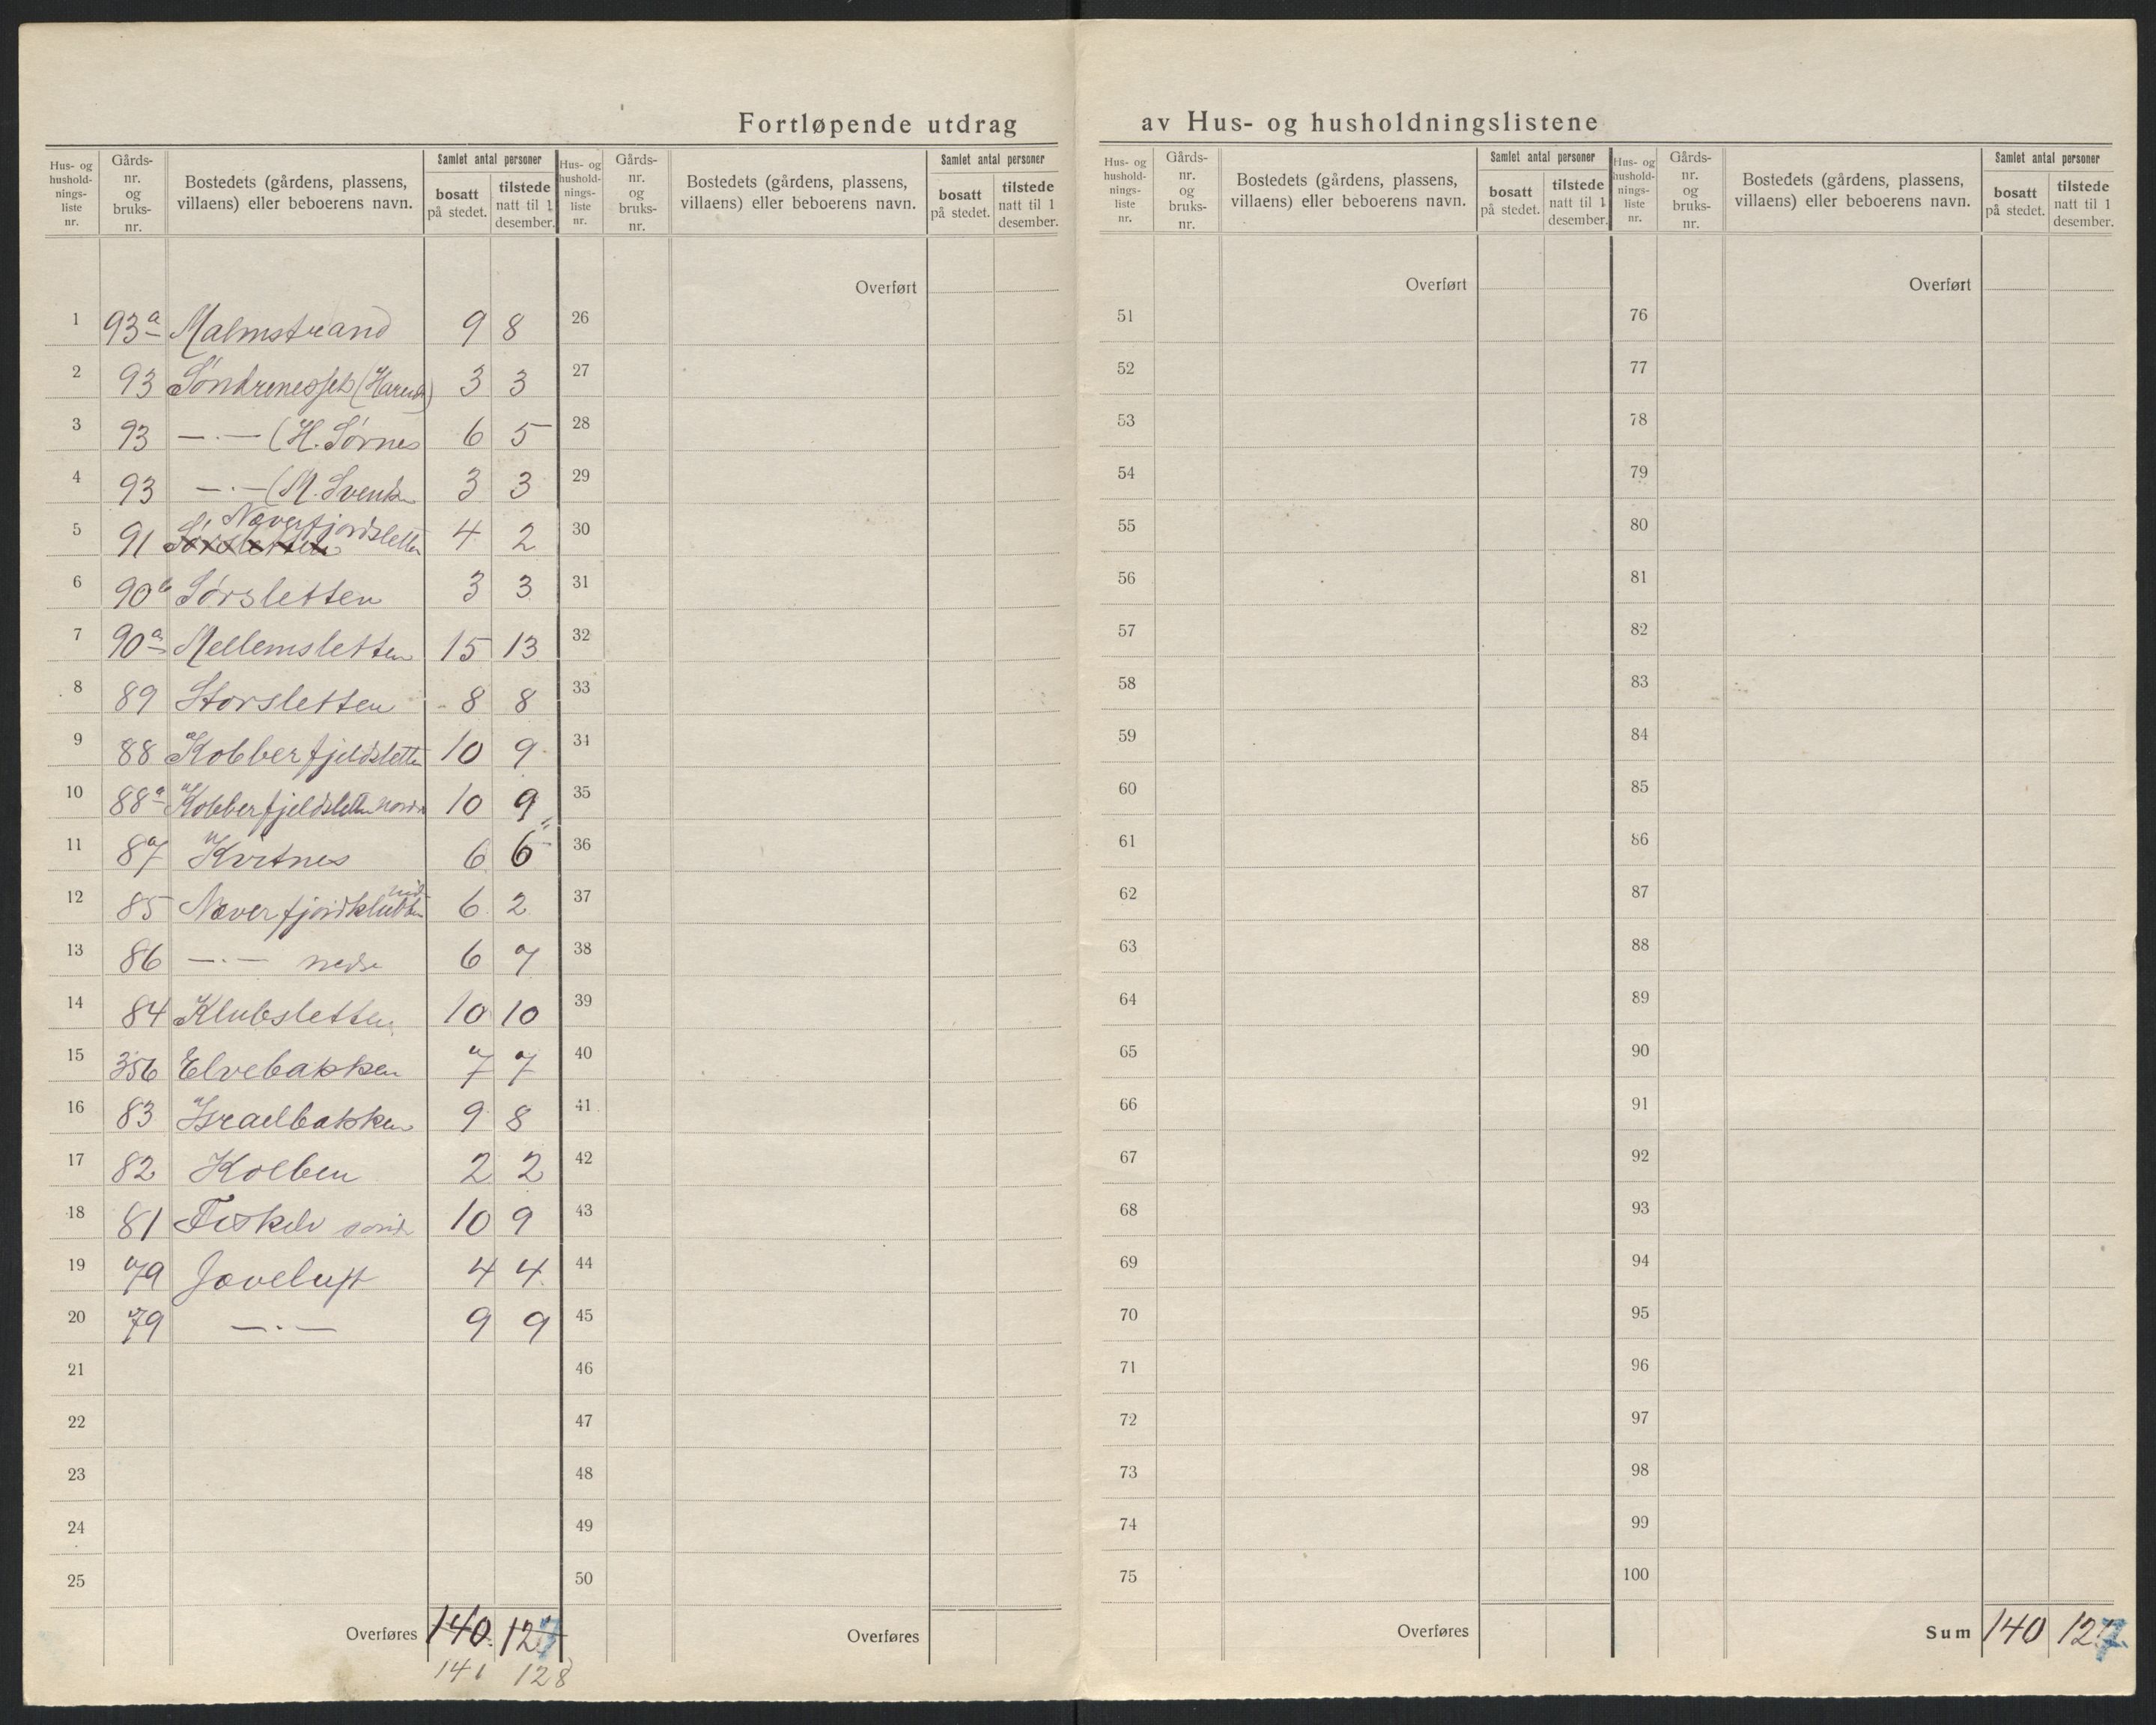 Fortløpende utdrag av Hus- og husholdningslistene
Hus- og hushold-nings-liste nr. | Gårds-nr. og bruks-nr. | Bostedets (gårdens, plassens, villaens) eller beboerens navn. | Samlet antal personer | bosatt på stedet. | tilstede natt til 1 desember.
Hus- og hushold-nings-liste nr. | Gårds-nr. og bruks-nr. | Bostedets (gårdens, plassens, villaens) eller beboerens navn. | Samlet antal personer | bosatt på stedet. | tilstede natt til 1 desember.
Hus- og hushold-nings-liste nr. | Gårds-nr. og bruks-nr. | Bostedets (gårdens, plassens, villaens) eller beboerens navn. | Samlet antal personer | bosatt på stedet. | tilstede natt til 1 desember.
Hus- og hushold-nings-liste nr. | Gårds-nr. og bruks-nr. | Bostedets (gårdens, plassens, villaens) eller beboerens navn. | Samlet antal personer | bosatt på stedet. | tilstede natt til 1 desember.
1 93a Malmstrand 9 8
2 93 3 3
3 93 —.— (H. Sørnes 6 5
4 93 —.— (M. 3 3
5 91 Sørsletten Næverfjordsletten 4 2
6 90b Sørsletten 3 3
7 90a Mellemsletten 15 13
8 89 Storsletten 8 8
9 88 Kobberfjeldsletten 10 9
10 88a Kobberfjeldsletten 10 9
11 87 Kvitnes 6 6
12 85 Næverfjordklubben 6 2
13 86 —.— nedre 6 7
14 84 Klubsletten 10 10
15 356 Elvebakken 7 7
16 83 Israelbakken 9 8
17 82 Kolben 2 2
18 81 Fiskelv 10 9
19 79 Jøveluft 4 4
20 79 —.— 9 9
21
22
23
24
25
Overføres 140 127
141 128
Overført
26
27
28
29
30
31
32
33
34
35
36
37
38
39
40
41
42
43
44
45
46
47
48
49
50
Overføres
Overført
51
52
53
54
55
56
57
58
59
60
61
62
63
64
65
66
67
68
69
70
71
72
73
74
75
Overføres
Overført
76
77
78
79
80
81
82
83
84
85
86
87
88
89
90
91
92
93
94
95
96
97
98
99
100
Sum 140 127